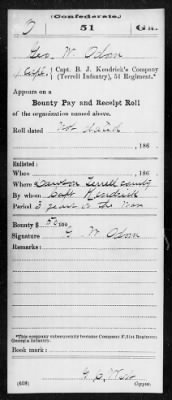 (Confederate.)
O 51 Ga.
Geo. W. Odom
Capt. B. J. Kendrick's Company
(Terrell Infantry), 51 Regiment.*
Appears on a
Bounty Pay and Receipt Roll
of the organization named above.
Roll dated Not dated
, 186
Enlisted:
When , 186
Where Dawson Terrell County
By whom Capt Kendrick
Period 3 years or the War
Bounty $ 50
Signature G. W. Odom
Remarks:
*This company subsequently became Company F, 51st Regiment Georgia Infantry.
Book mark:
(609)
Copyist.